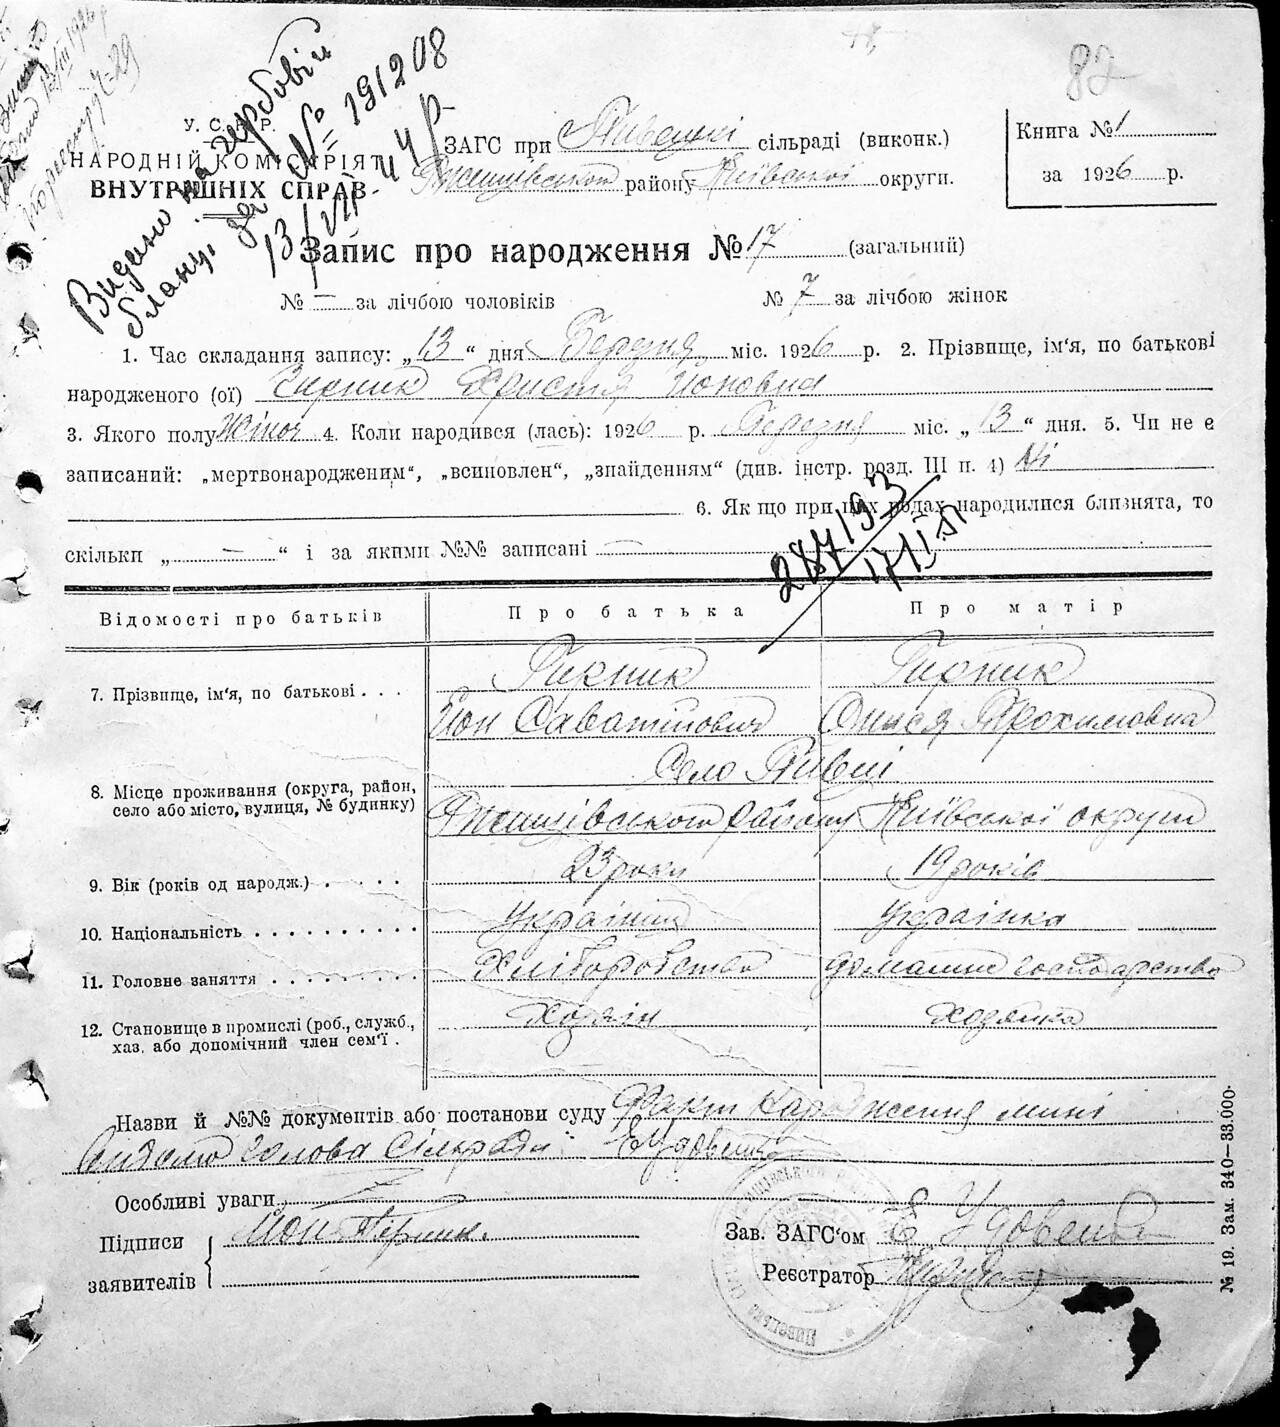 82
Видано на гербовій
бланці за № 191208
13/VII 44 р.
У. С. Р. Р.
НАРОДНІЙ КОМІСАРІЯТ
ВНУТРІШНІХ СПРАВ
ЗАГС при Пивецькі сільраді (виконк.)
Ржищівського району Київської округи.
Книга № 1
за 1926 р.
Запис про народження № 17 (загальний)
№ — за лічбою чоловіків № 7 за лічбою жінок
1. Час складання запису: „ 13 “ дня Березня міс. 1926 р. 2. Прізвище, ім'я, по батькові
народженого (ої) Гирник Христя Йоновна
3. Якого полу Жіноч 4. Коли народився (лась): 1926 р. Березня міс. „ 13 “ дня. 5. Чи не є
записаний: „мертвонародженим“, „всиновлен“, „знайденням“ (див. інстр. розд. III п. 4) Ні
6. Як що при цих родах народилися близнята, то
скільки „ — “ і за якими №№ записані —
287193
17/II 51
Відомості про батьків Про батька Про матір
7. Прізвище, ім'я, по батькові . . . Гирник Гирник
Йон Саватійович Онися Трохимовна
8. Місце проживання (округа, район, село або місто, вулиця, № будинку) Село Пивці
Ржищівського району Київської округи
9. Вік (років од народж.) . . . . . 23 роки 19 років
10. Національність . . . . . . . . . . Українец Українка
11. Головне заняття . . . . . . . . Хліборобство домашнє господарство
12. Становище в промислі (роб., служб.,
хаз. або допомічний член сем'ї . Хозяїн Хозяйка
Назви й №№ документів або постанови суду Факт народження мині
відомо голова Сільради: Е Удовенко
Особливі уваги
Підписи
заявителів
Йон Гирник.
Зав. ЗАГС'ом Е Удовенко
Реєстратор
№ 19. Зам. 340—33.000.